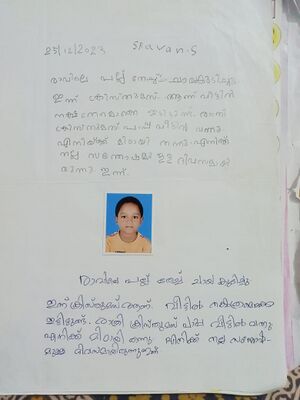 25/12/2023 Sravan.S
രാവിലെ പല്ല് തേച്ചു ചായകുടിച്ചു
ഇന്ന് ക്രിസ്തുമസ് ആണ് വീട്ടിൽ
നക്ഷത്രമൊക്കെ ഇട്ടിട്ടുണ്ട്. രാത്രി
ക്രിസ്തുമസ് പാപ്പ വീട്ടിൽ വന്നു
എനിയ്ക്ക് മിഠായി തന്നു എനിക്ക്
നല്ല സന്തോഷമുള്ള ദിവസമായി
രുന്നു ഇന്ന്.
രാവിലെ പല്ല് തേച്ച് ചായ കുടിച്ചു
ഇന്ന് ക്രിസ്തുമസ് ആണ്. വീട്ടിൽ നക്ഷത്രമൊക്കെ
ഇട്ടിട്ടുണ്ട്. രാത്രി ക്രിസ്തുമസ് പാപ്പ വീട്ടിൽ വന്നു
എനിക്ക് മിഠായി തന്നു. എനിക്ക് നല്ല സന്തോഷ-
മുള്ള ദിവസമായിരുന്നു ഇന്ന്